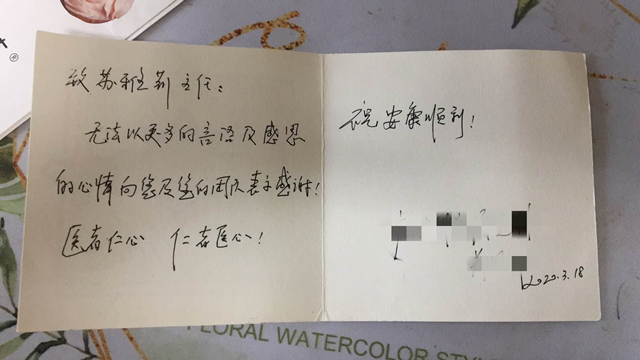 致苏雅莉主任：
无法以更多的言语及感恩
的心情向您及您的团队表示感谢！
医者仁心 仁者医心！
祝安康顺利！
2020.3.18
FLORAL WATERCOLOR STYLE
®